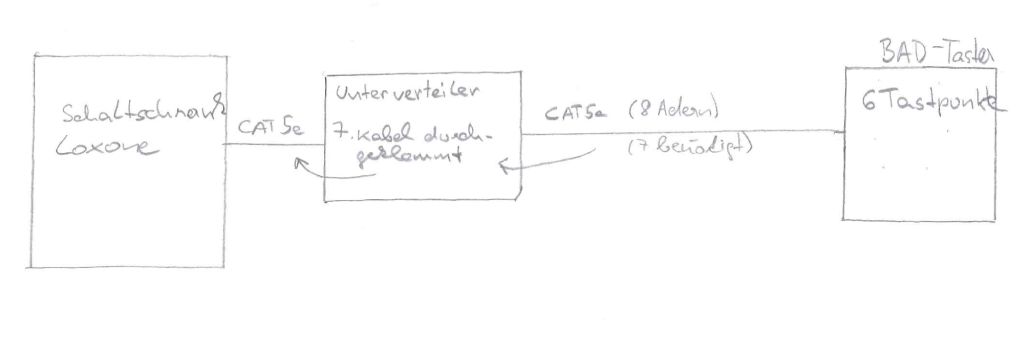 BAD-Taster
Schaltschrank
Loxone
CAT 5e
Unterverteiler
7. Kabel durch-
geklemmt
CAT5e (8 Adern)
(7 benötigt)
6 Tastpunkte